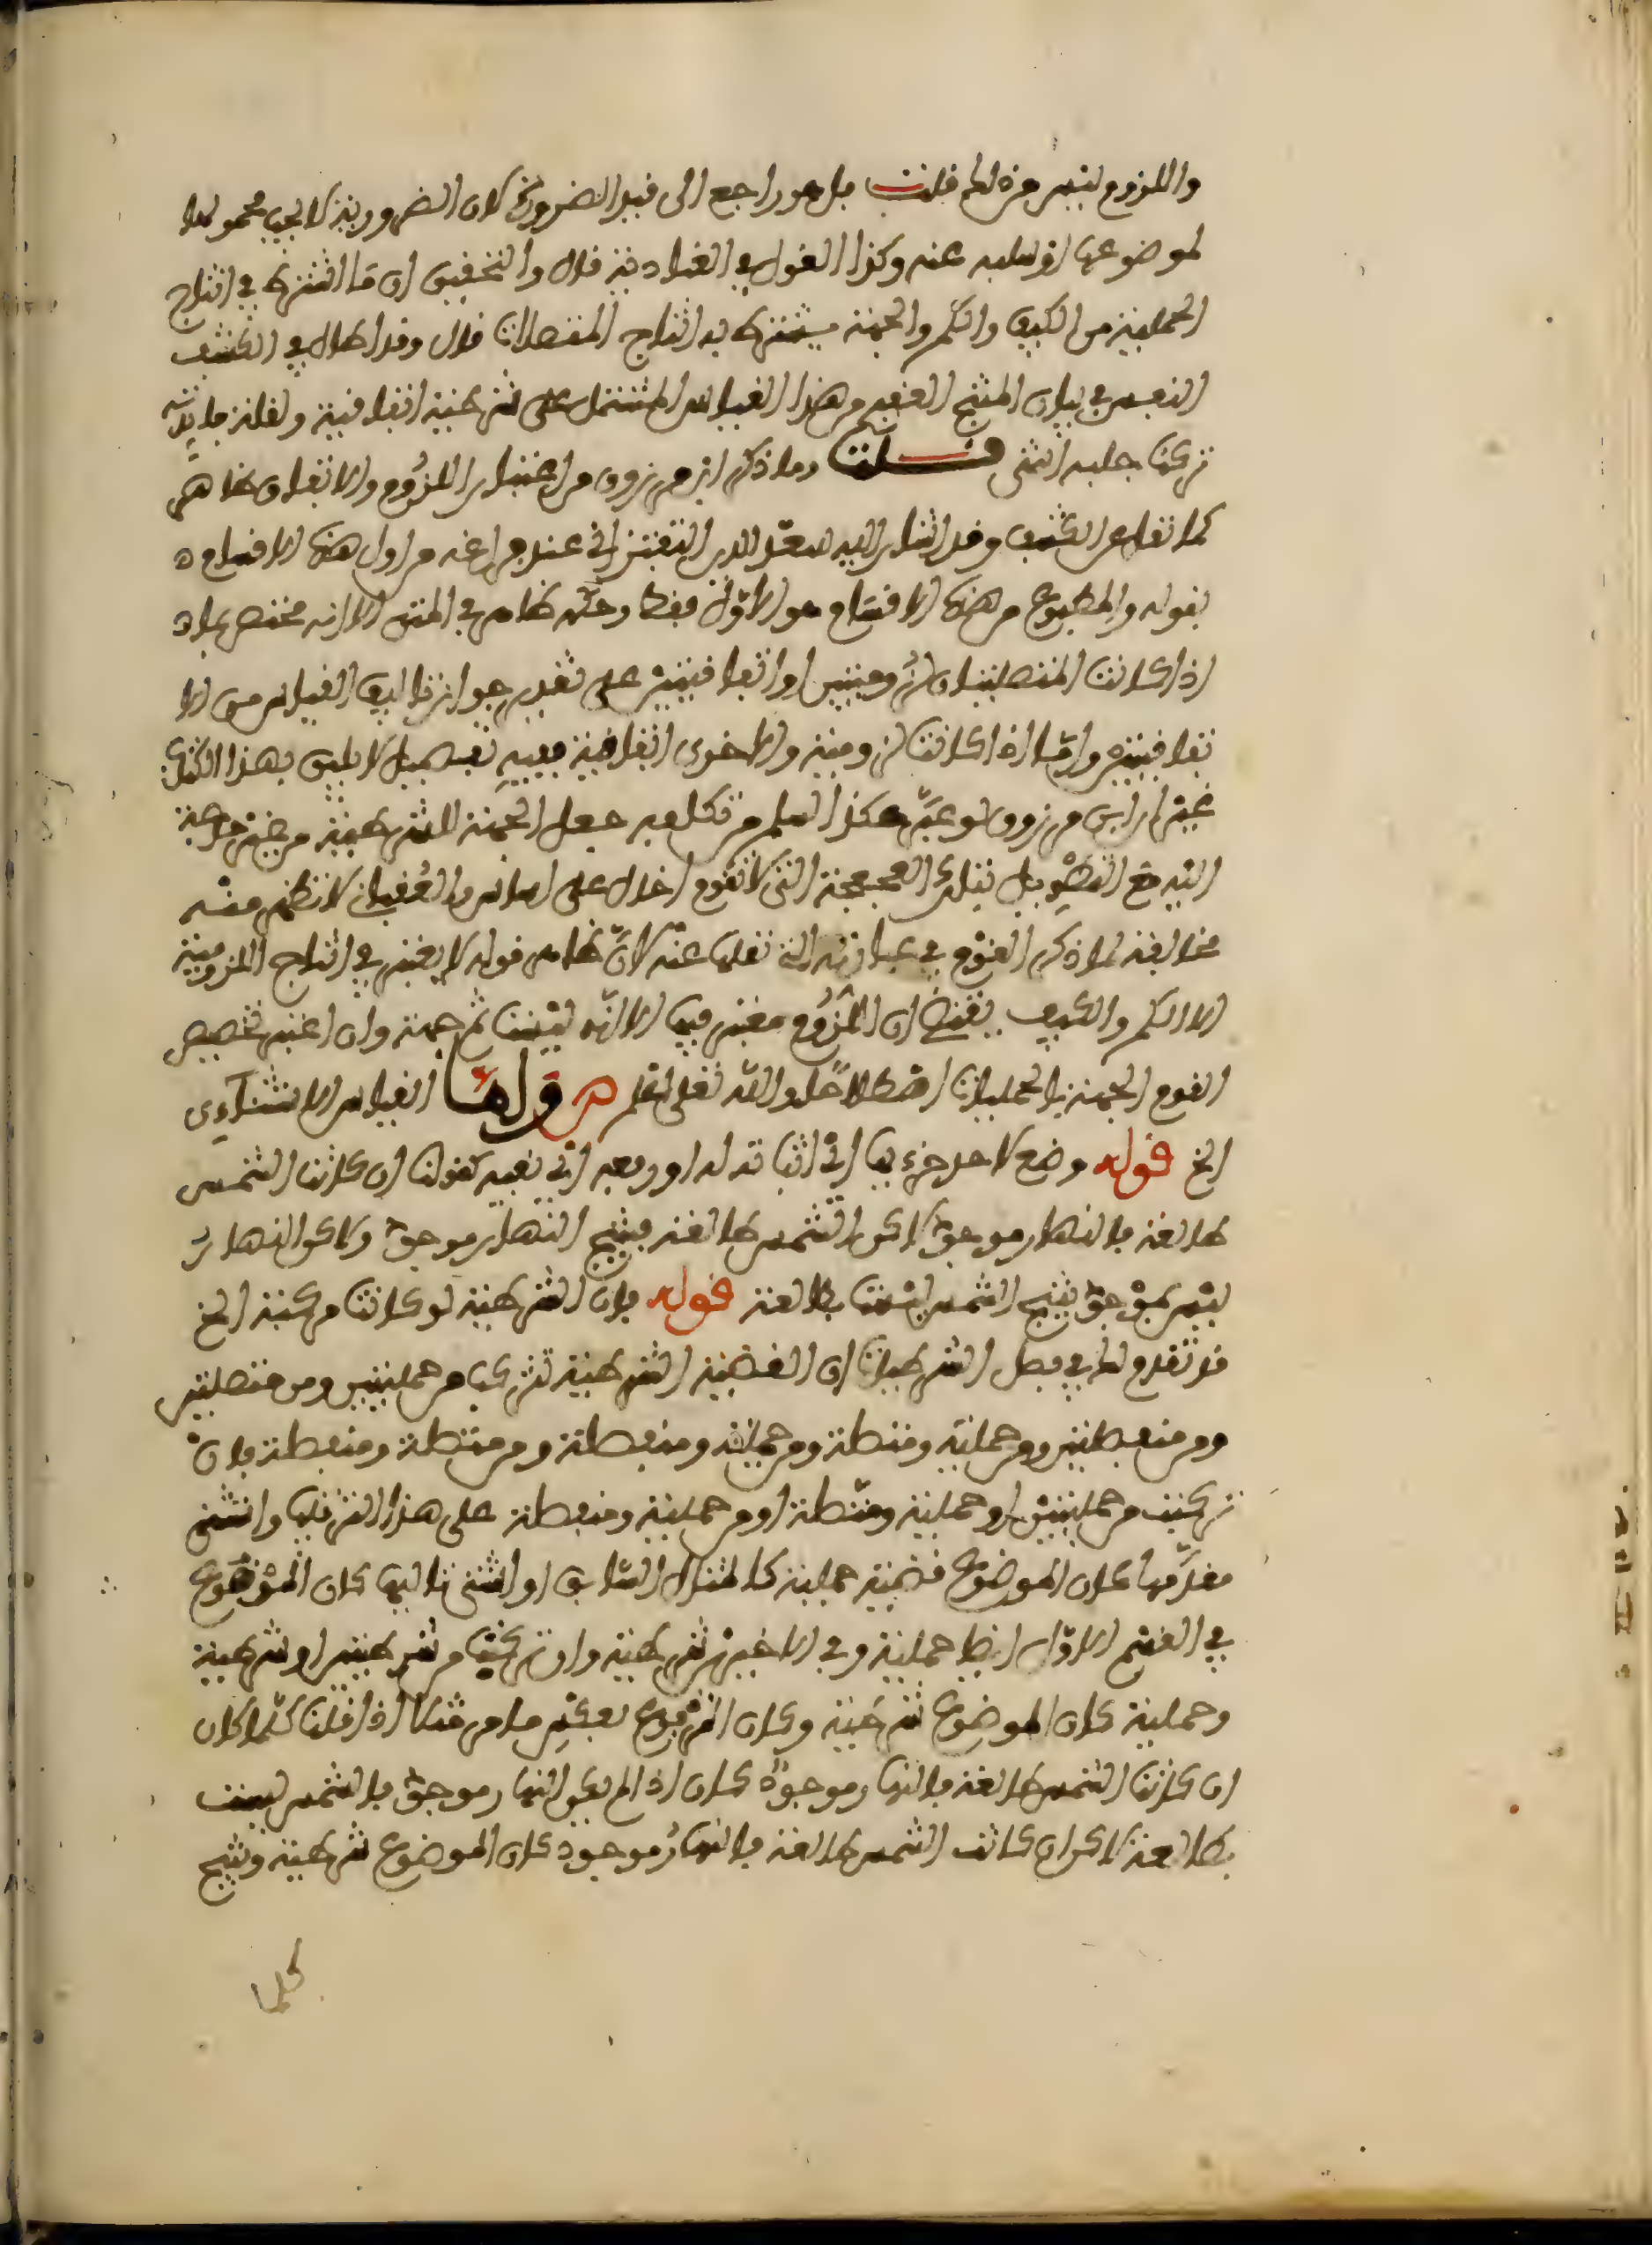 واللزوم ليس جزء لها قلت بل هو راجع الى قيد الضرورة لان الضرورية لا يجب محمولها
لموضوعها او سلبه عنه وكذا القول في العنادية قال والتحقيق ان ما اشترط في انتاج
الحمليتين من الكيف والكم والجهة يشترط به انتاج المتصلات قال وقد اطال في الكشف
النفس في بيان المنتج العقيم من هذا القياس المشتمل على شرطية اتفاقية ولقلة فائدته
تركنا جلبه انتهى قلت وما ذكر ابن مرزوق من اعتبار اللزوم والاتفاق ظاهر
كما نقله عن الكشف وقد اشار اليه سعد الدين التفتزاني عند فراغه من اول هذه الاقسام
بقوله والمطبوع من هذه الاقسام هو الاول فقط وحكمه ظاهر في المتن الا انه مختص بما
اذا كانت المتصلتان لزوميتين او اتفاقيتين على تقدير جواز تاليف القياس من الا
تفاقيتين واما اذا كانت لزومية والاخرى اتفاقية ففيه تفصيل لا يليق بهذا الكتاب
غير ان ابن مرزوق لو عبر هكذا لسلم من تكلفه جعل الجهة للشرطية من غير حاجة
اليه مع التطويل بتلك العجعجة التي لا تقوم اخال على اساس والعقباني لا تظهر منه
مخالفة لما ذكر القوم في عبارته التي نقلها عنه لان ظاهر قوله لا يعتبر في انتاج اللزومية
الا الكم والكيف يقتضي ان اللزوم معتبر فيها الا انه ليست ثم جهة وان اعتبر تخصيص
القوم الجهة بالحمليات اصطلاحا والله تعلى اعلم ص قولها القياس الاستثناءي
الخ قوله وضع لاحد جزءيها اي اثباته له او رفعه اي نفيه كقولنا ان كانت الشمس
طالعة فالنهار موجود لكن الشمس طالعة فينتج النهار موجود ولاكن النهار
ليس بموجود ينتج الشمس ليست بطالعة قوله فان الشرطية لو كانت مركبة الخ
قد تقدم لها في فصل الشرطيات ان القضية الشرطية تتركب من حمليتين ومن متصلتين
ومن منفصلتين ومن حملية ومتصلة ومن حملية ومنفصلة ومن متصلة ومنفصلة فان
تركبت من حمليتين او حملية ومتصلة او من حملية ومنفصلة على هذا الترتيب واستثني
مقدمها كان الموضوع قضية حملية كالمثال السابق او استثني تاليها كان المرفوع
في القسم الاول ايضا حملية وفي الاخيرين شرطية وان تركبت من شرطيتين او شرطية
وحملية كان الموضوع شرطية وكان المرفوع بعكس ما مر مثلا اذا قلنا كلما كان
ان كانت الشمس طالعة فالنهار موجود كان اذا لم يكن النهار موجود فالشمس ليست
بطالعة لاكن ان كانت الشمس طالعة فالنهار موجود كان الموضوع شرطية وينتج
كلما